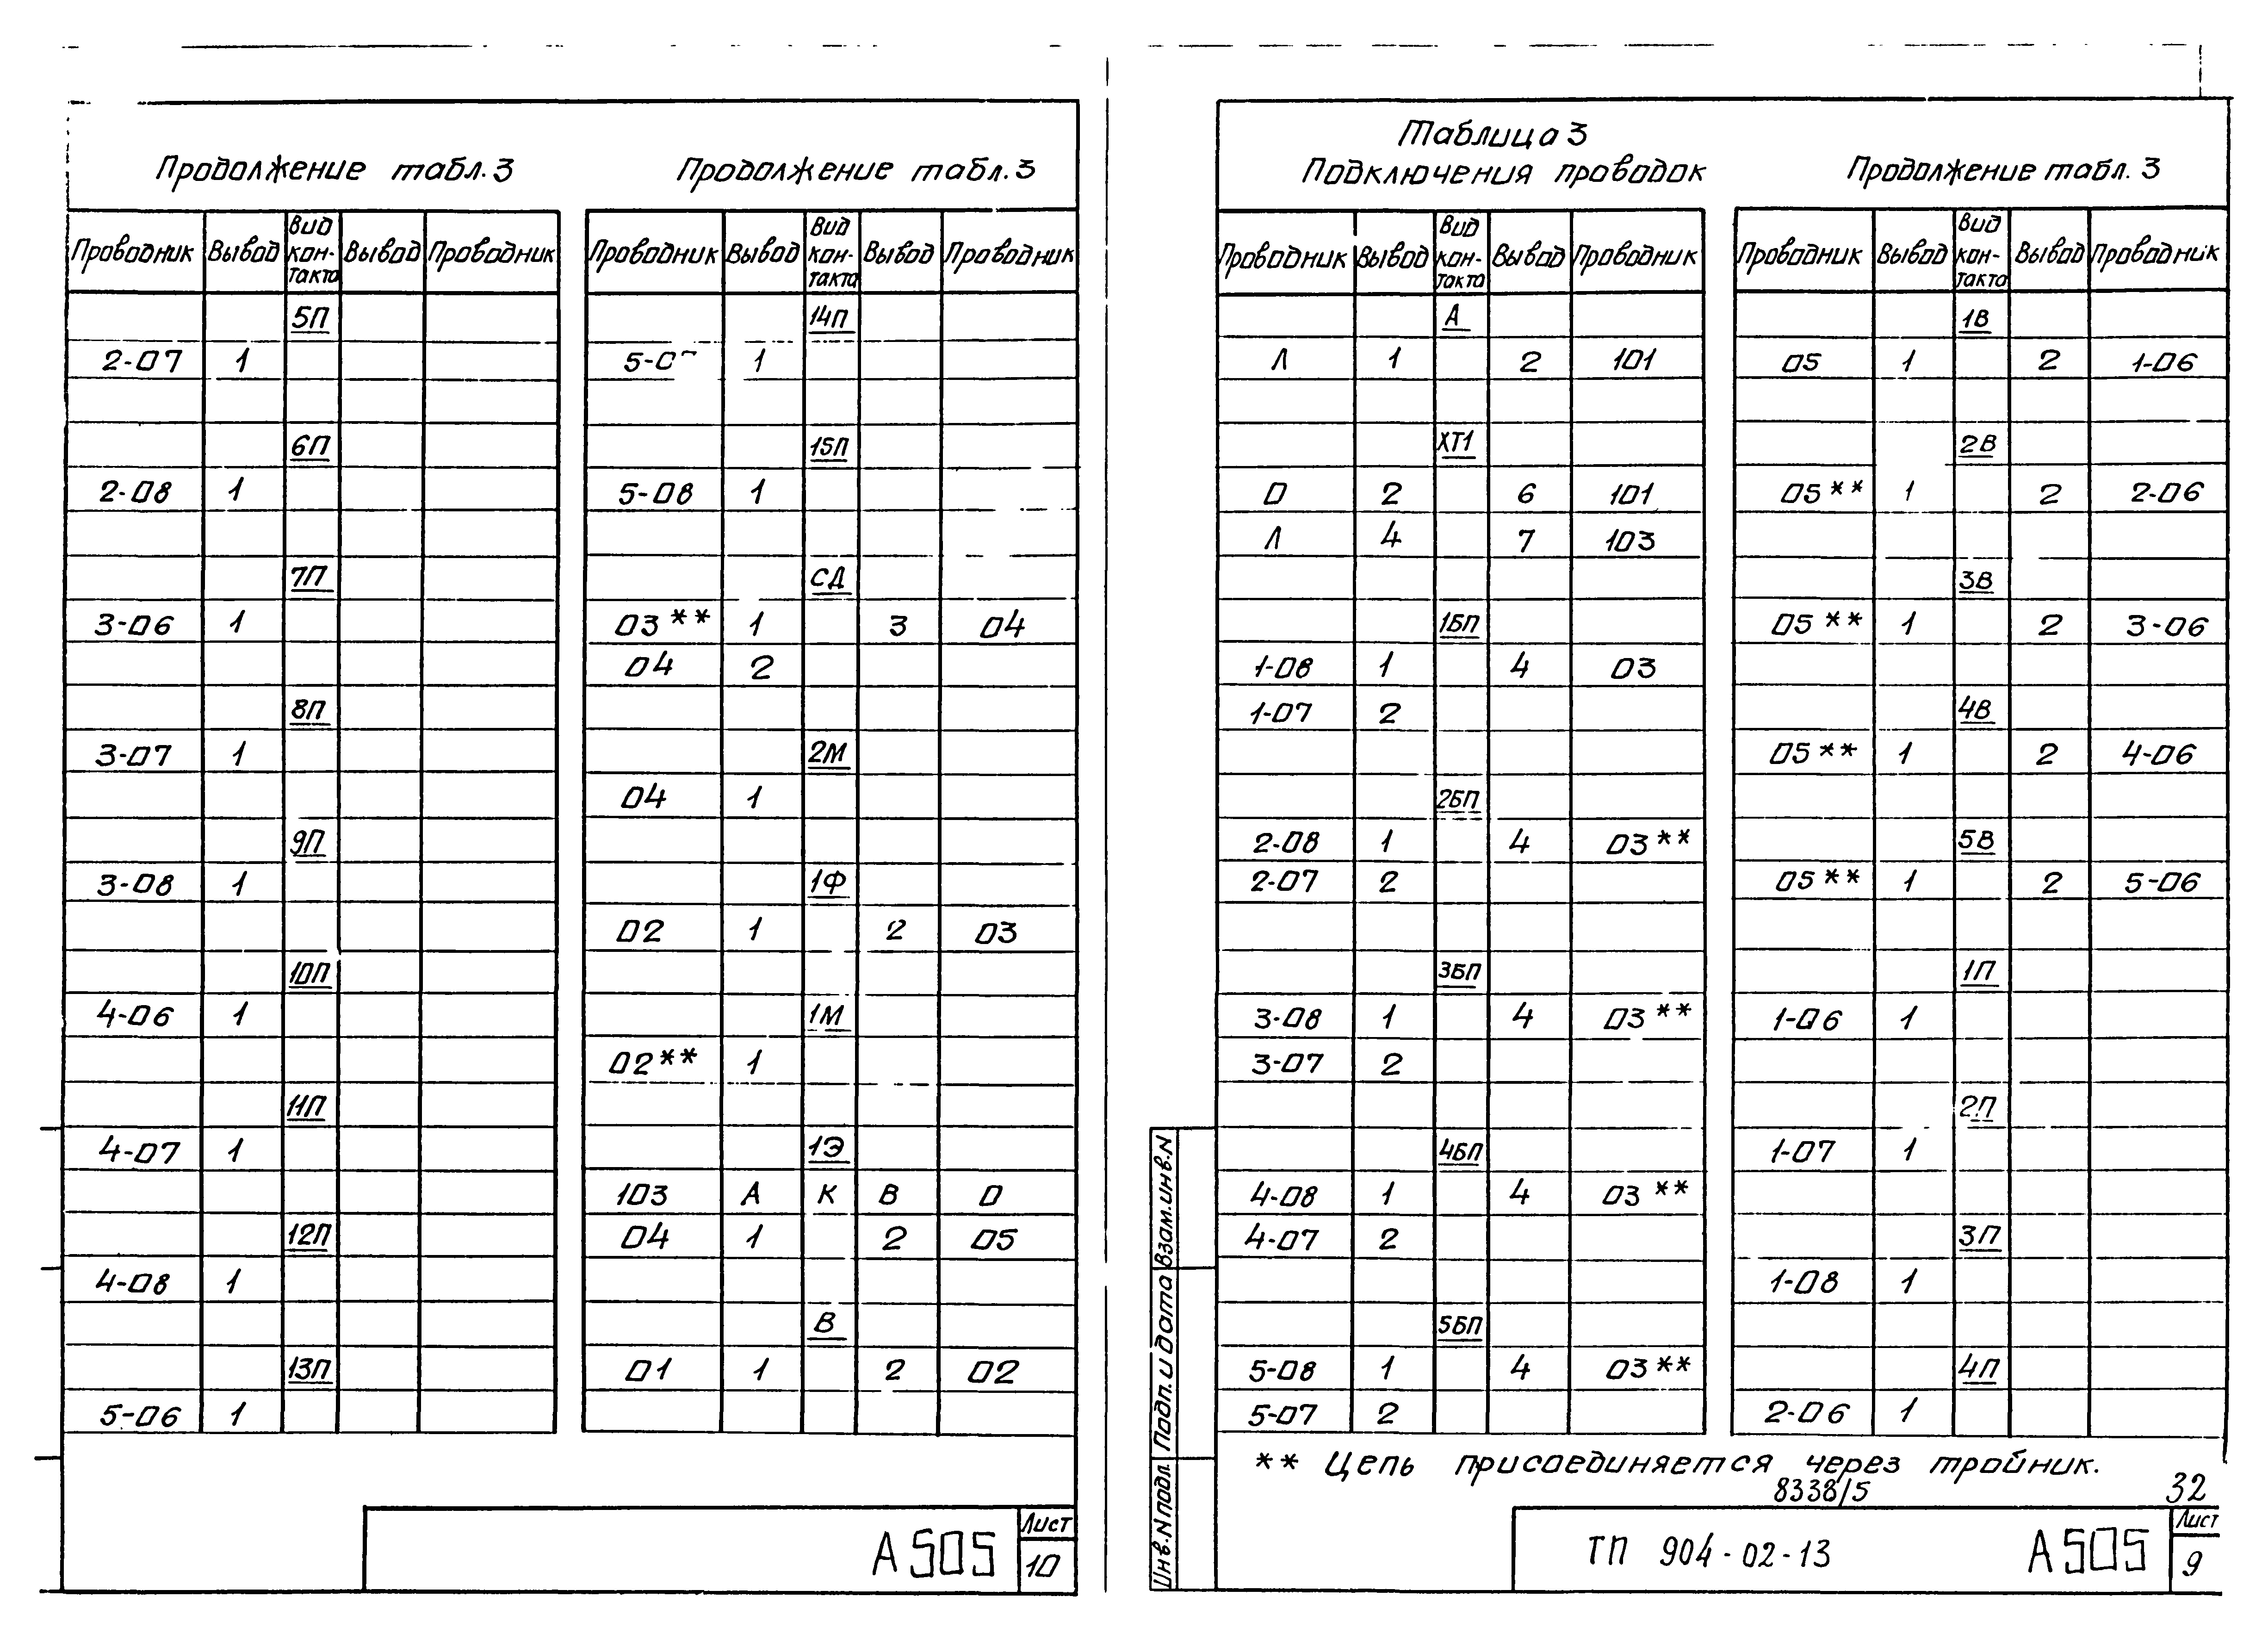 Продолжение табл. 3
Проводник Вывод Вид контакта Вывод Проводник
5П
2-07 1
6П
2-08 1
7П
3-06 1
8П
3-07 1
9П
3-08 1
10П
4-06 1
11П
4-07 1
12П
4-08 1
13П
5-06 1
Продолжение табл. 3
Проводник Вывод Вид контакта Вывод Проводник
14П
1
15П
5-08 1
СД
03** 1 3 04
04 2
2М
04 1
1Ф
02 1 2 03
1М
02** 1
1Э
103 А К В 0
04 1 2 05
В
01 1 2 02
А505
Лист
10
Таблица 3
Подключения проводок
Проводник Вывод Вид контакта Вывод Проводник
А
Л 1 2 101
ХТ1
0 2 6 101
Л 4 7 103
1БП
1-08 1 4 03
1-07 2
2БП
2-08 1 4 03**
2-07 2
3БП
3-08 1 4 03**
3-07 2
4БП
4-08 1 4 03**
4-07 2
5БП
5-08 1 4 03**
5-07 2
Продолжение табл. 3
Проводник Вывод Вид контакта Вывод Проводник
1В
05 1 2 1-06
2В
05** 1 2 2-06
3В
05** 1 2 3-06
4В
05** 1 2 4-06
5В
05** 1 2 5-06
1П
1-06 1
2П
1-07 1
3П
1-08 1
4П
2-06 1
** Цепь присоединяется через тройник.
8338/5
32
Инв.N подл. Подп. и дата Взам.инв.N
ТП 904-02-13 А505
Лист
9